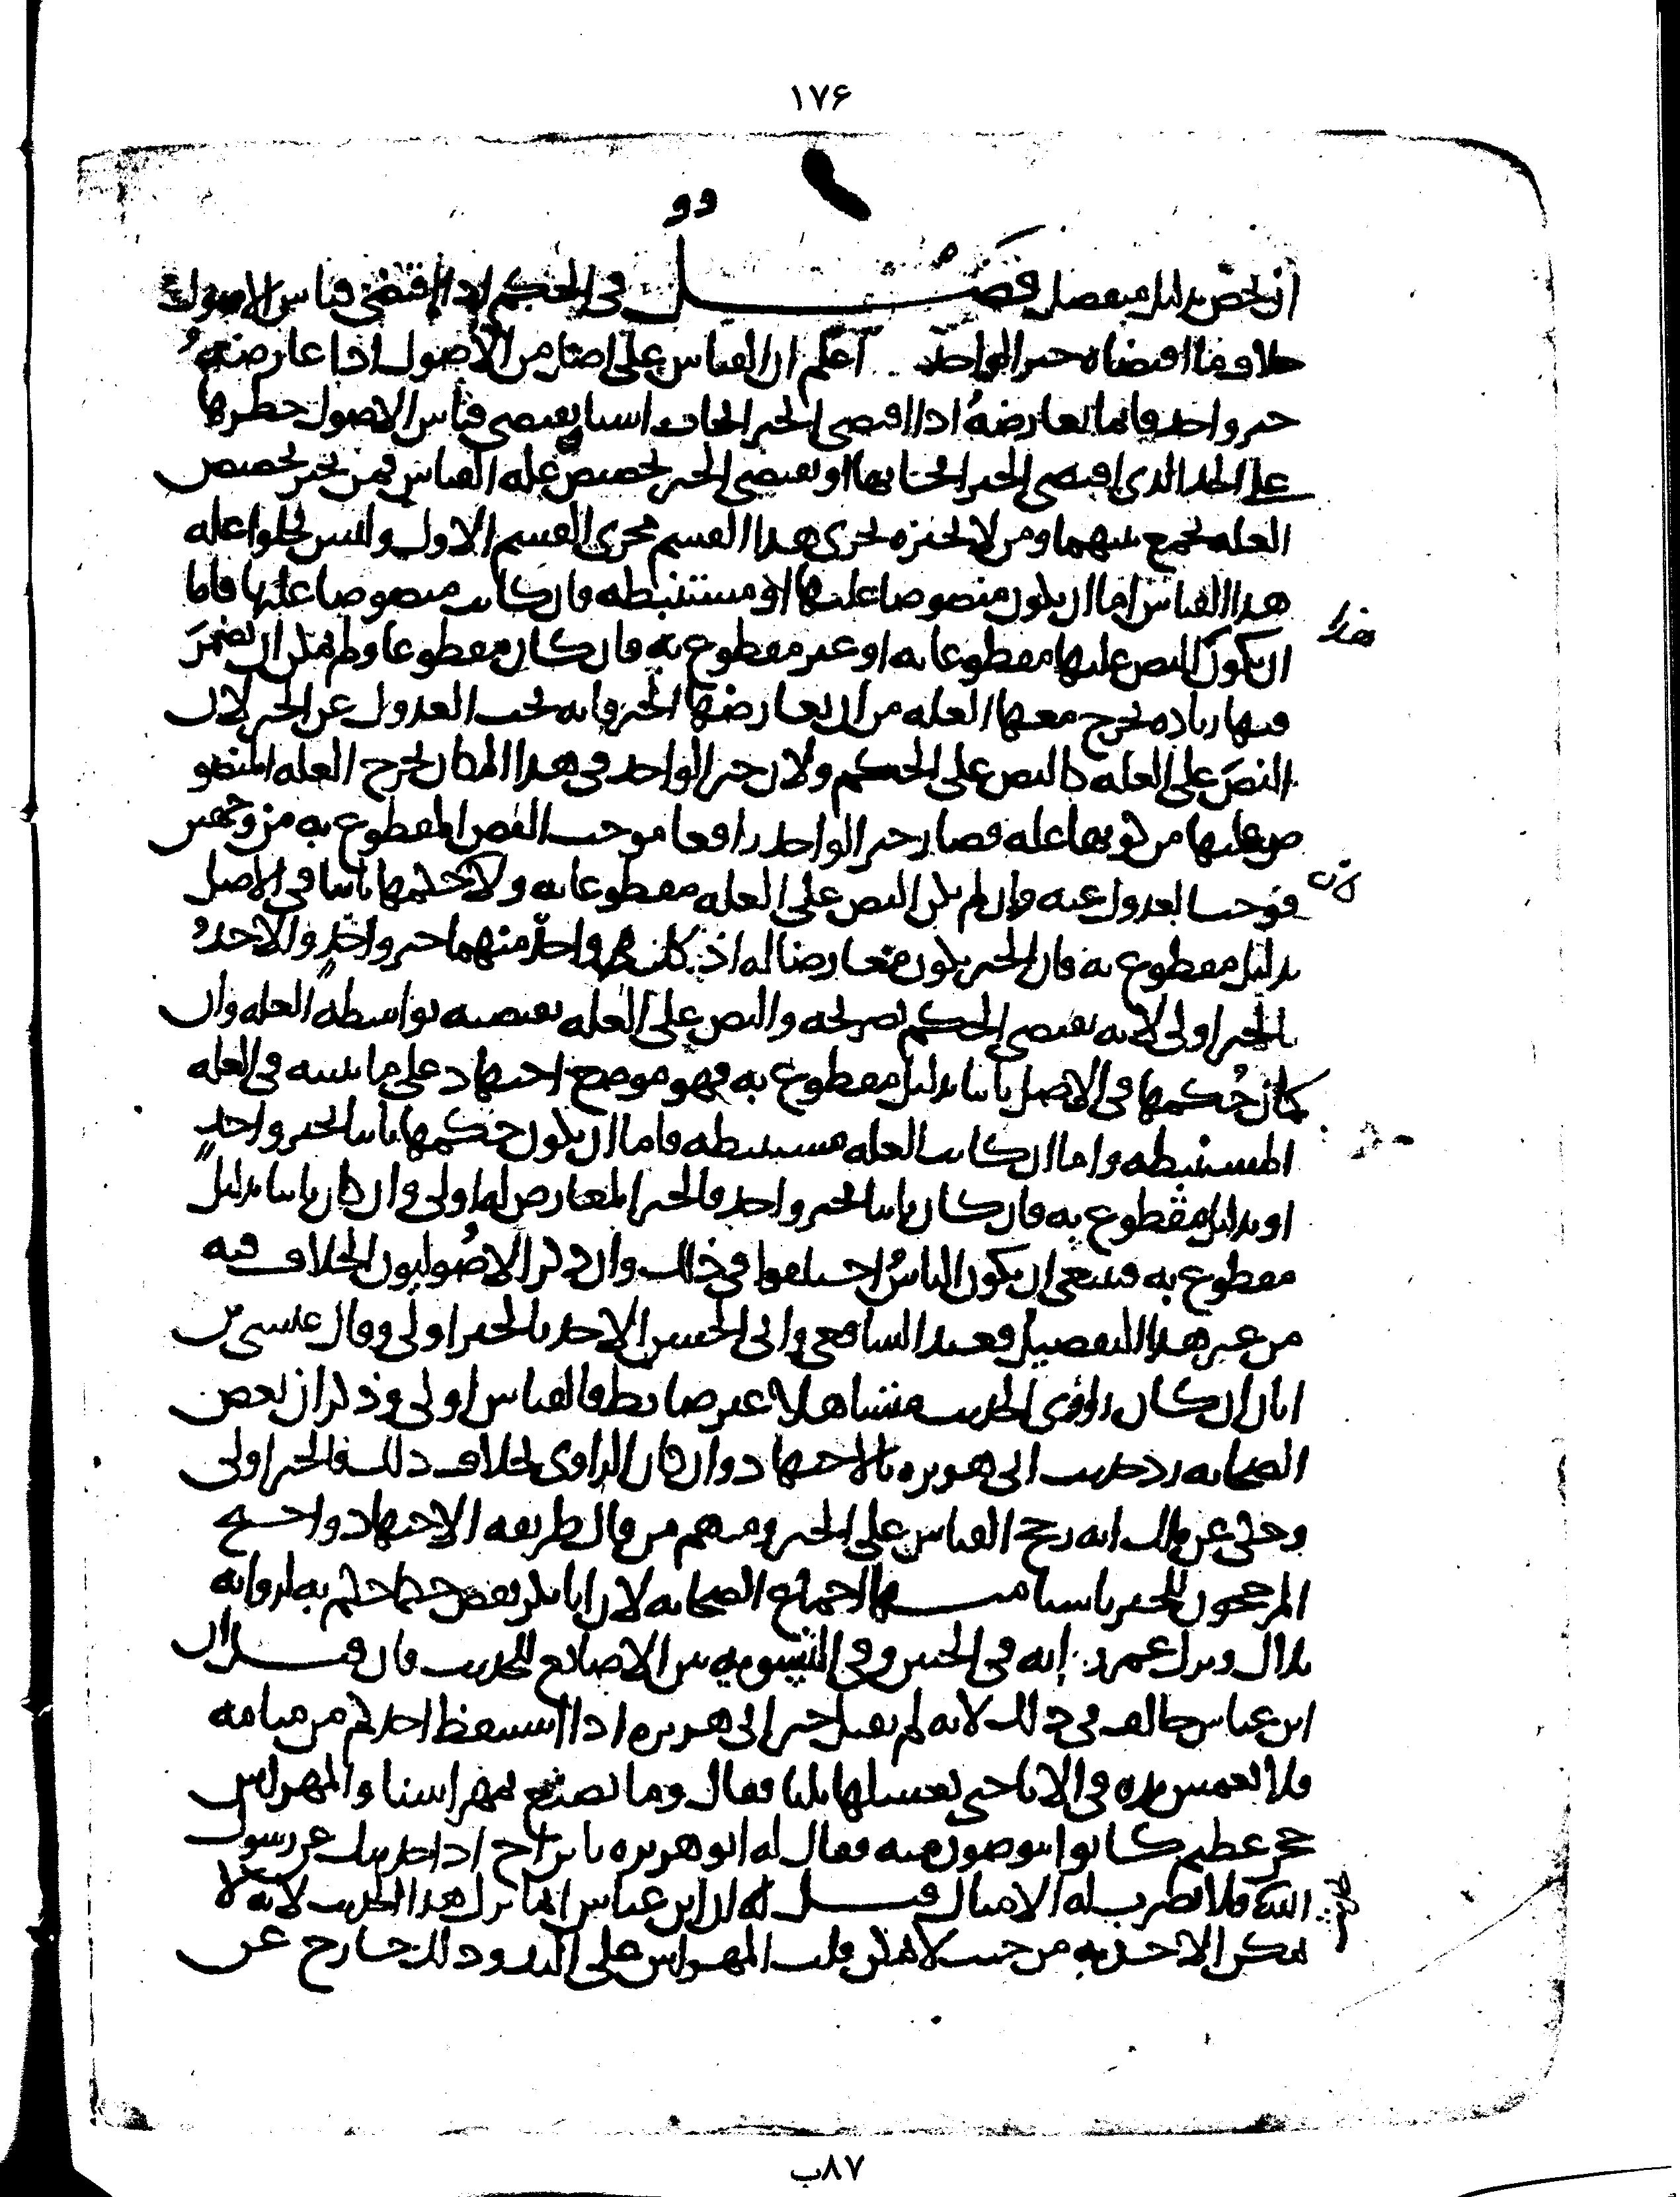 ١٧۶
ان يخص بدليل منفصل فصل في الحكم اذا اقتضى قياس الاصول
خلاف ما اقتضاه خبر الواحد اعلم ان القياس على اصل من الاصول اذا عارضه
خبر واحد فانما تعارضه اذا اقتضى الخبر ايجاب اشيا يقتضي قياس الاصول حظرها
على الحد الذي اقتضى الخبر ايجابها او يقتضي الخبر تخصيص عله القياس فمن يجيز تخصيص
العله يجمع بينهما ومن لا يجيزه يجري هذا القسم مجرى القسم الاول وليس يخلوا عله
هذا القياس اما ان يكون منصوصا عليها او مستنبطه فان كانت منصوصا عليها فاما
ان يكون النص عليها مقطوعا به او غير مقطوع به فان كان مقطوعا ولم يمكن ان يضمر
فيها زياده يخرج معها العله من ان يعارضها الخبر فانه يجب العدول عن الخبر لان
النص على العله كالنص على الحكم ولان خبر الواحد في هذا المكان يخرج العله المنصو
ص عليها من كونها عله فصار خبر الواحد رافعا موجب النص المقطوع به من وجهين
فوجب العدول عنه وان لم يكن النص على العله مقطوعا به ولا حكمها ثابتا في الاصل
بدليل مقطوع به فان الخبر يكون معارضا له اذ كان كل واحد منهما خبر واحد والاخذ
بالخبر اولى لانه يقتضي الحكم بصريحه والنص على العله يقتضيه بواسطه العله وان
كان حكمها في الاصل ثابتا بدليل مقطوع به فهو موضع اجتهاد على ما نبينه في العله
المستنبطه واما ان كانت العله مستنبطه فاما ان يكون حكمها ثابتا بخبر واحد
او بدليل مقطوع به فان كان ثابتا بخبر واحد فالخبر المعارض له اولى وان كان ثابتا بدليل
مقطوع به فينبغي ان يكون الناس اختلفوا في ذلك وان ذكر الاصوليون الخلاف فيه
من غير هذا التفصيل فعند الشافعي وابي الحسن الاخذ بالخبر اولى وقال عيسى بن
ابان ان كان راوي الحديث متساهلا غير ضابط فالقياس اولى وذكر ان بعض
الصحابه رد حديث ابي هريره بالاجتهاد وان كان الراوي بخلاف ذلك فالخبر اولى
وحكي عن مالك انه رجح القياس على الخبر ومنهم من قال طريقه الاجتهاد واحتج
المرجحون للخبر باشيا منها اجماع الصحابه لان ابا بكر نقض حكما حكم به لروايه
بلال وترك عمر رايه في الجنين وفي التسويه بين الاصابع للحديث فان قيل ان
ابن عباس خالف في ذلك لانه لم يقبل خبر ابي هريره اذا استيقظ احدكم من منامه
فلا يغمس يده في الانا حتى يغسلها ثلثا فقال وما نصنع بمهراسنا والمهراس
حجر عظيم كانوا يتوضون منه فقال له ابو هريره يا بن اخي اذا حدثتك عن رسول
الله فلا تضرب له الامثال قيل له ان ابن عباس انما ترك هذا الحديث لانه لا
يمكن الاخذ به من حيث لا يمكن قلب المهراس على اليد وذلك خارج عن
هذا
٨٧ب